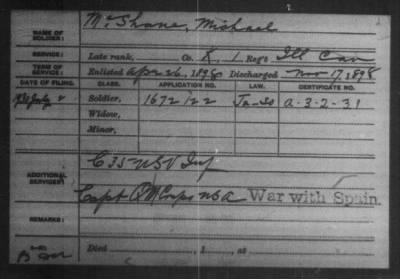 NAME OF SOLDIER: McShane, Michael
SERVICE: Late rank, Co. K, 1 Reg't Ill Cav
TERM OF SERVICE: Enlisted Apr 26, 1898 Discharged Nov 17, 1898
DATE OF FILING. CLASS. APPLICATION NO. LAW. CERTIFICATE NO.
Soldier, 1672122 A-3-2-31
Widow,
Minor,
ADDITIONAL SERVICES: C 35 U S V Inf
Capt Q M Corps U S A War with Spain.
REMARKS:
Died , 1 , at